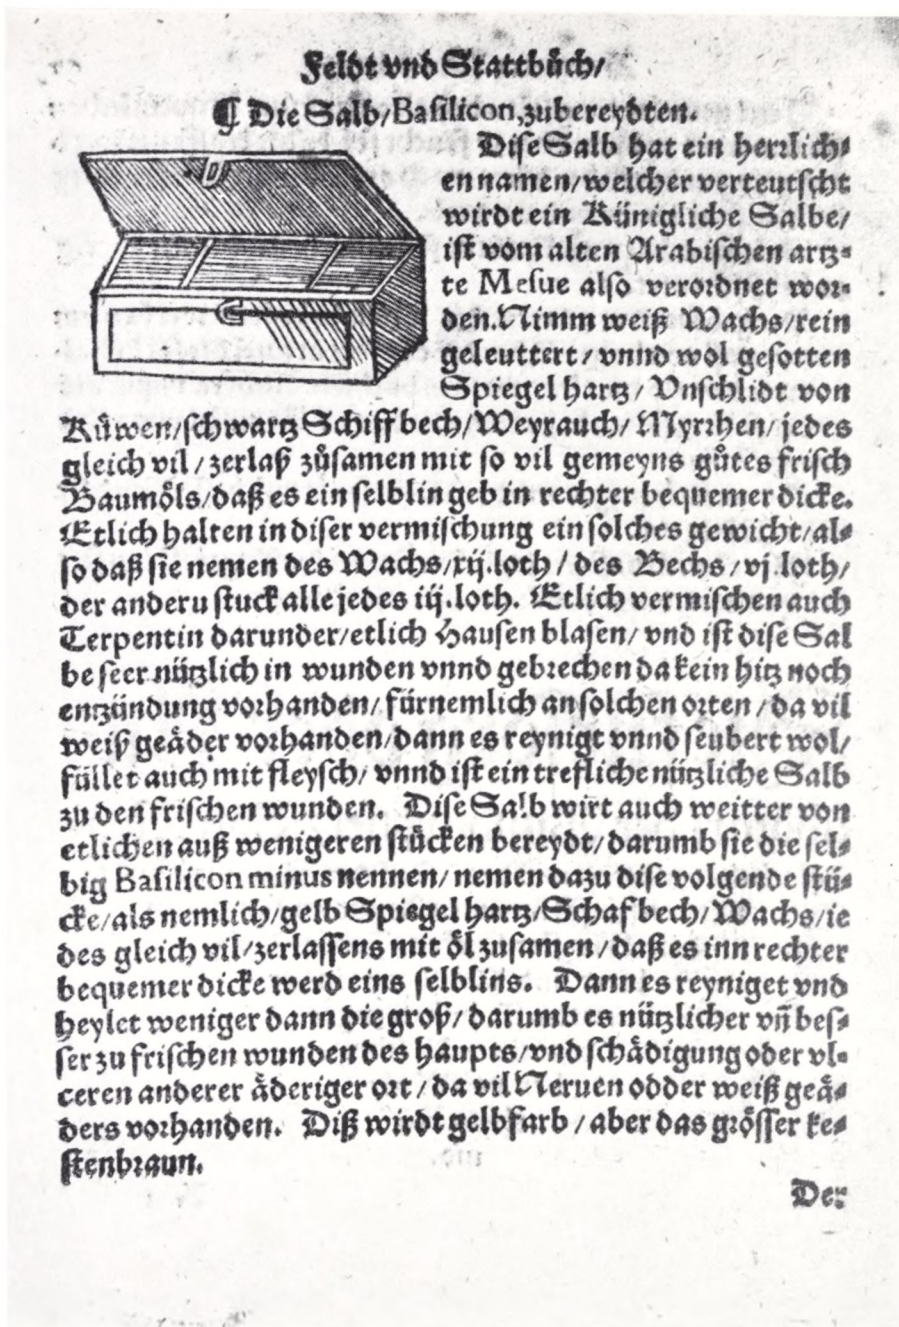 Feldt vnd Stattbůch/
¶ Die Salb/Basilicon,zubereydten.
Dise Salb hat ein herrlich⸗
en namen/welcher verteutscht
wirdt ein Künigliche Salbe/
ist vom alten Arabischen artz⸗
te Mesue also verordnet wor⸗
den. Nimm weiß Wachs/rein
geleuttert/vnnd wol gesotten
Spiegel hartz/Vnschlidt von
Küwen/schwartz Schiff bech/Weyrauch/Myrrhen/jedes
gleich vil/zerlaß zůsamen mit so vil gemeyns gůtes frisch
Baumöls/daß es ein selblin geb in rechter bequemer dicke.
Etlich halten in diser vermischung ein solches gewicht/al⸗
so daß sie nemen des Wachs/xij.loth/des Bechs/vj.loth/
der anderu stuck alle jedes iij.loth. Etlich vermischen auch
Terpentin darunder/etlich Hausen blasen/vnd ist dise Sal
be seer nützlich in wunden vnnd gebrechen da kein hitz noch
entzündung vorhanden/fürnemlich an solchen orten/da vil
weiß geäder vorhanden/dann es reynigt vnnd seubert wol/
füllet auch mit fleysch/vnnd ist ein trefliche nützliche Salb
zu den frischen wunden. Dise Salb wirt auch weitter von
etlichen auß wenigeren stücken bereydt/darumb sie die sel⸗
big Basilicon minus nennen/nemen dazu dise volgende stü⸗
cke/als nemlich/gelb Spiegel hartz/Schaf bech/Wachs/ie
des gleich vil/zerlassens mit öl zusamen/daß es inn rechter
bequemer dicke werd eins selblins. Dann es reyniget vnd
heylet weniger dann die groß/darumb es nützlicher vñ bes⸗
ser zu frischen wunden des haupts/vnd schädigung oder vl⸗
ceren anderer äderiger ort/da vil Neruen odder weiß geä⸗
ders vorhanden. Diß wirdt gelbfarb/aber das grösser ke⸗
stenbraun.
Der